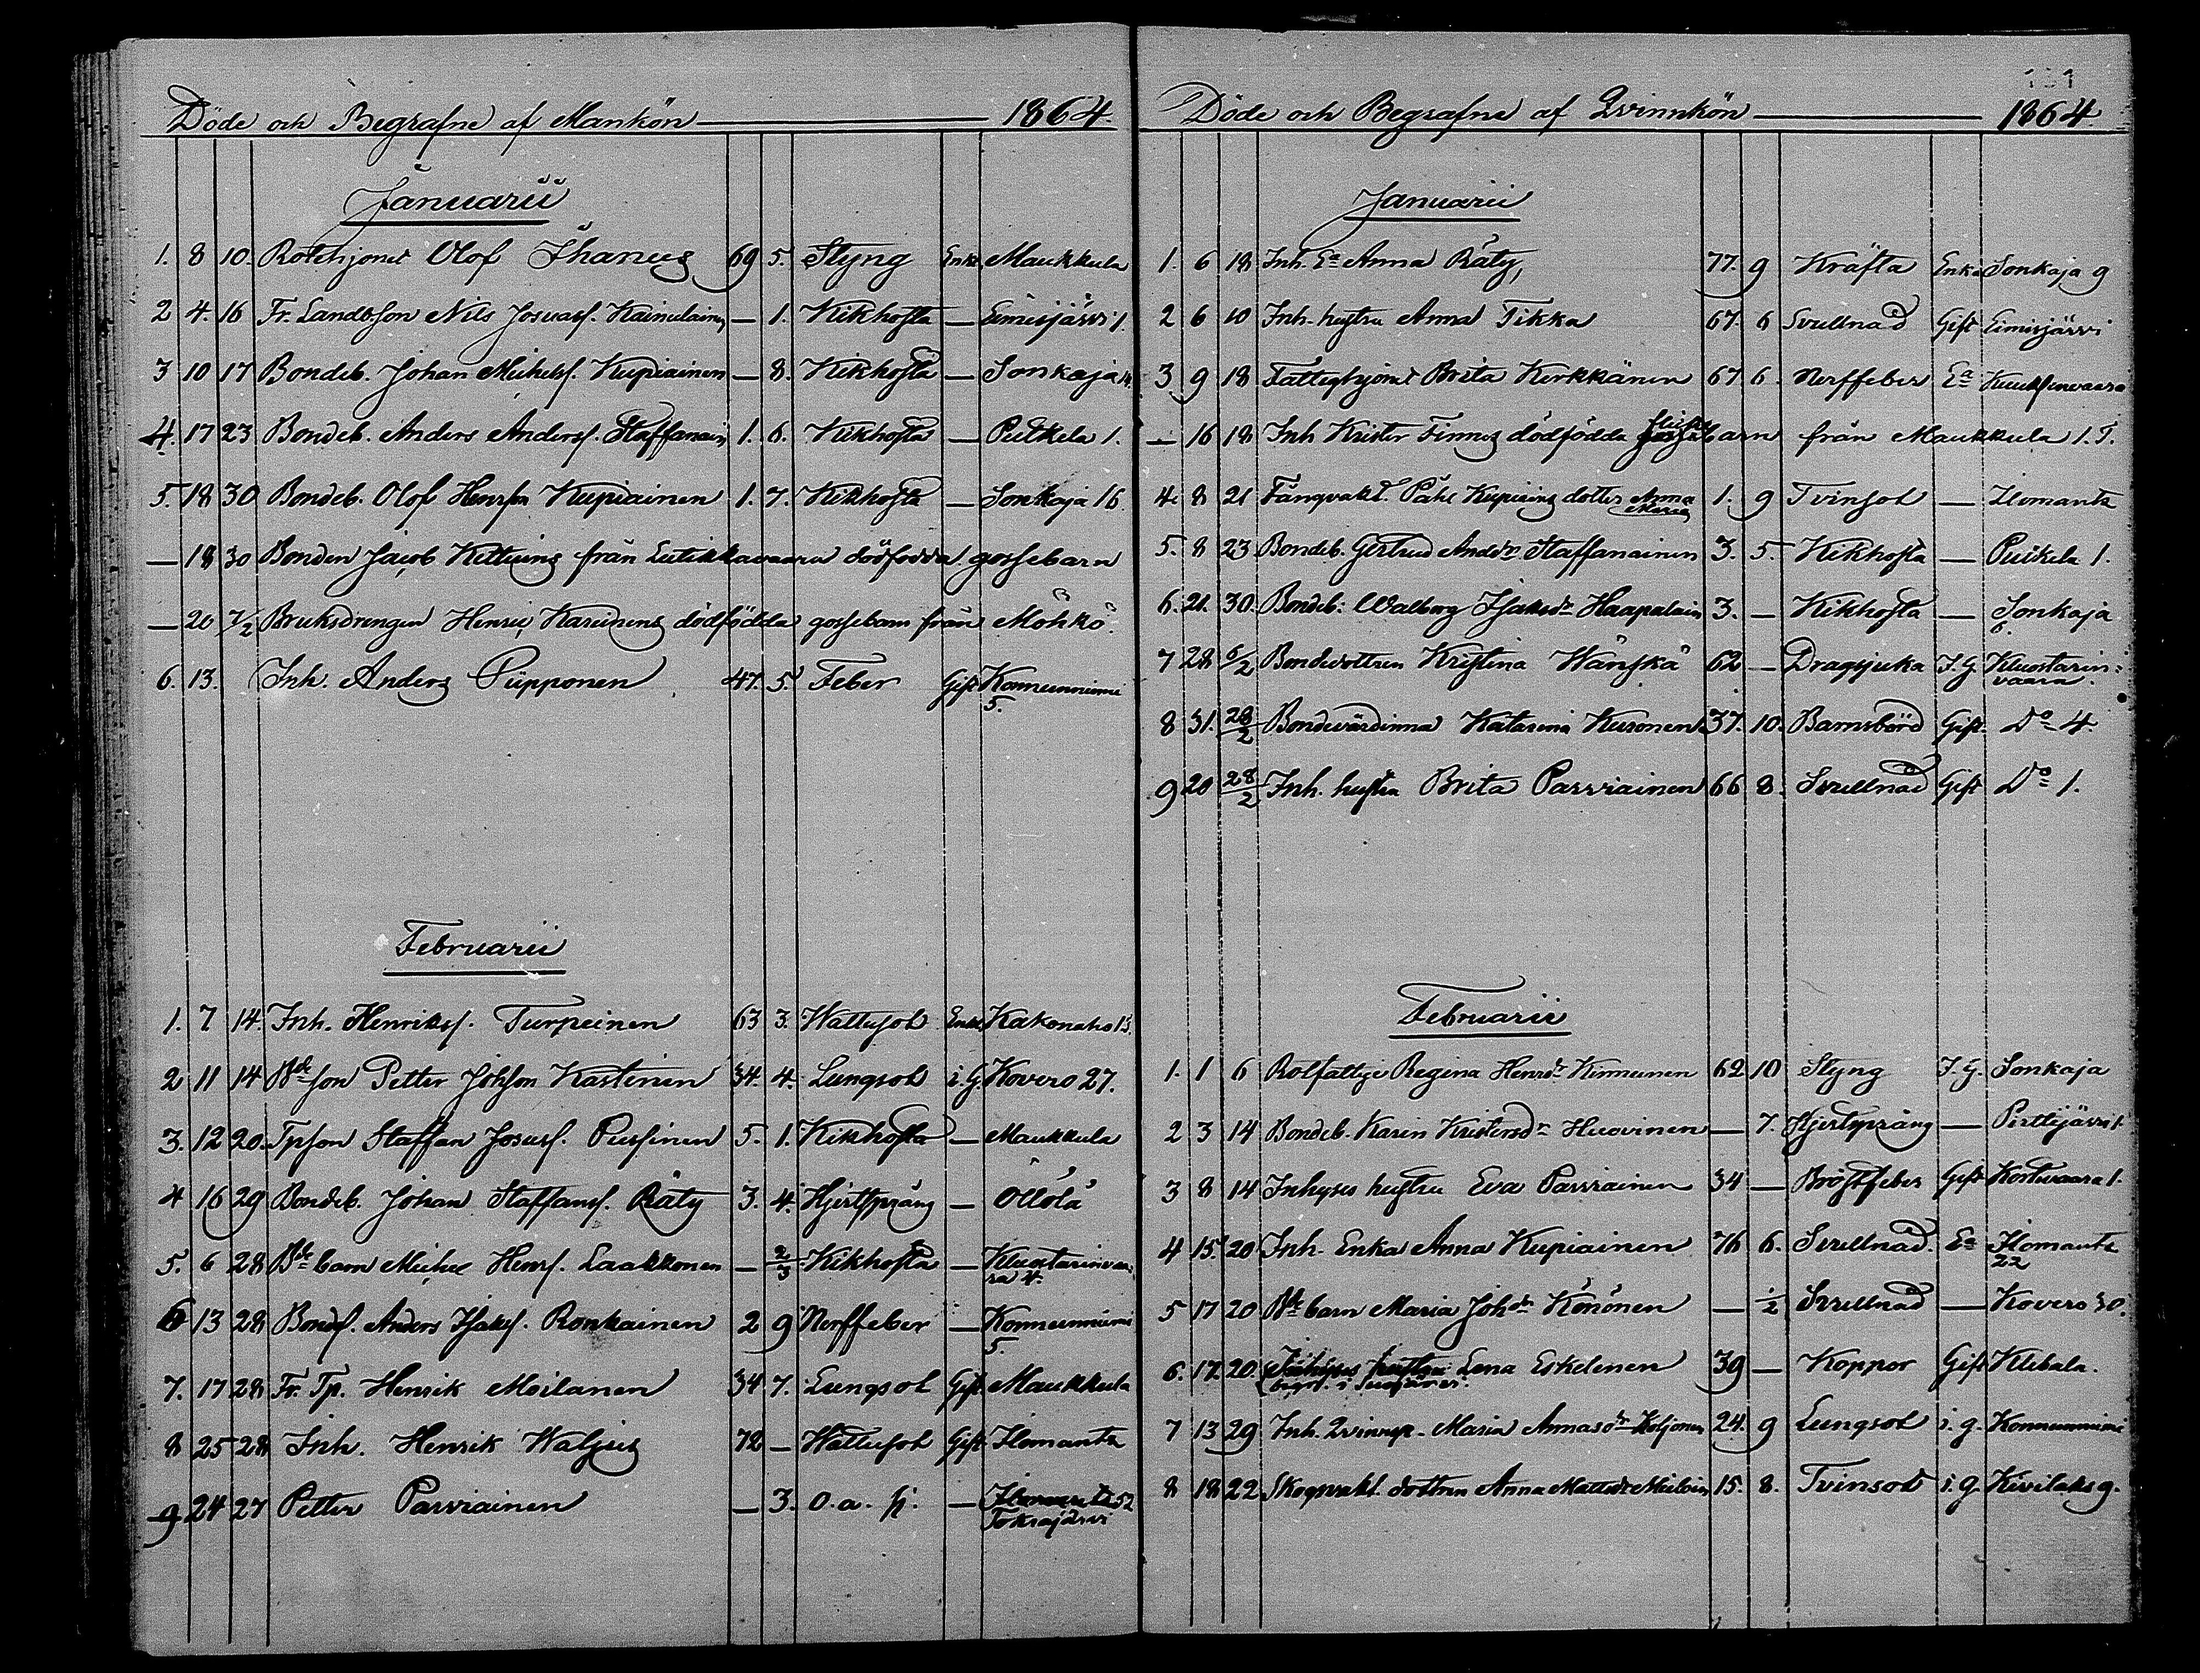 Döde och Begrafne af Mankön 1864.
Januarii
1. 8 10. Rotehjonet Olof Ihanus 69 5. Styng Enkl. Maukkula
2 4. 16 Fr. Landbson Nils Josuasf. Kainulainen — 1. Kikhosta — Eimisjärvi 1.
3 10 17 Bondeb. Johan Michelsf. Kupiainen — 8. Kikhosta — Sonkaja 14.
4. 17 23 Bondeb. Anders Andersf. Staffanain 1. 6. Kikhosta — Putkela 1.
5. 18 30 Bondeb. Olof Henrson Kupiainen 1. 7. Kikhosta — Sonkaja 16.
— 18 30 Bonden Jacob Kettuins från Lutikkavaara dödfödda gossebarn
— 26 7/2 Bruksdrengen Henric Karinens dödfödda gossebarn från Möhkö.
6. 13. Inh. Anders Piipponen 47. 5. Feber Gift Konnunniemi
5.
Februarii
1. 7 14. Inh. Henriksf. Turpeinen 63 3. Wattusot Enkl. Kakonaho 13.
2 11 14 Bde son Petter Johson Kastinen 34. 4. Lungsot i.G. Kovero 27.
3. 12 20. Tpson Staffan Josuasf. Pussinen 5. 1. Kikhosta — Maukkula
4 16 29 Bondeb. Johan Staffansf. Räty 3. 4. Hjertsprång — Ollola
5. 6 28 Bde barn Michel Henrsf. Laakkonen — 2/3 Kikhosta — Kluostarinvaa-
ra 4.
6 13 28 Bondsf. Anders Isaksf. Ronkainen 2 9 Nerffeber — Konnunniemi
5.
7. 17 28 Fr. Tp. Henrik Moilanen 34 7. Lungsot Gift Maukkula
8 25 28 Inh. Henrik Waljus 72 — Wattusot Gift Ilomants
9 24 27 Petter Parviainen — 3. O.a. — Ilomants 52
Tokrajärvi
131
Döde och Begrafne af Qvinnkön 1864.
Januarii
1. 6 18 Inh. Ea Anna Räty, 77. 9 Kräfta Enka Sonkaja 9
2 6 10 Inh. hustru Anna Tikka 67. 6 Svullnad Gift Eimisjärvi
3 9 18 Fattighjonet Brita Kerkkänen 67 6. Nerffeber Ea Kuuksenvaara
flicke
— 16 18 Inh Krister Finnes dödfödda gosse barn från Maukkula 1. T.
4. 8 21 Fångvakt. Påhl Kupiains dotter Anna 1. 9 Tvinsot — Ilomants
Maria
5. 8 23 Bondeb. Gertrud Andedr Staffanainen 3. 5. Kikhosta — Putkela 1.
6. 21. 30. Bondeb: Walborg Isaksdr Haapalain 3. — Kikhosta — Sonkaja
6.
7 28 6/2 Bondedottren Kristina Wänskä 62 — Dragsjuka I.G Kluostarin-
vaara.
8 31. 28/2 Bondevärdinna Katarina Kuronen 37. 10. Barnsbörd Gift. Do 4.
9 20 28/2 Inh. hustru Brita Parviainen 66 8. Svullnad Gift Do 1.
Februarii
1. 1 6 Rotfattige Regina Henrdr Kinnunen 62 10 Styng I.G. Sonkaja
2 3 14 Bondeb. Karin Kristersdr Huovinen — 7. Hjertsprång — Perttijärvi 1.
3 8 14 Inhyses hustru Eva Parviainen 34 — Bröstfeber Gift Kostuvaara 1.
4 15. 20 Inh. Enka Anna Kupiainen 76 6. Svullnad. Ea Ilomants
22
5 17 20 Bde barn Maria Johdr Könönen — 1/2 Svullnad — Kovero 30.
6. 17. 20. Inhyses hustru Lena Eskelinen 39 — Koppor Gift Klibala.
begr. i Suojärvi.
7 13 29 Inh. Qvinnsp. Maria Annasdr Koljonen 24. 9 Lungsot i.g. Konnunniemi
8 18 22 Skogvakt. dottren Anna Mattsdr Meiloin 15. 8. Tvinsot i.g. Kivilaks 9.